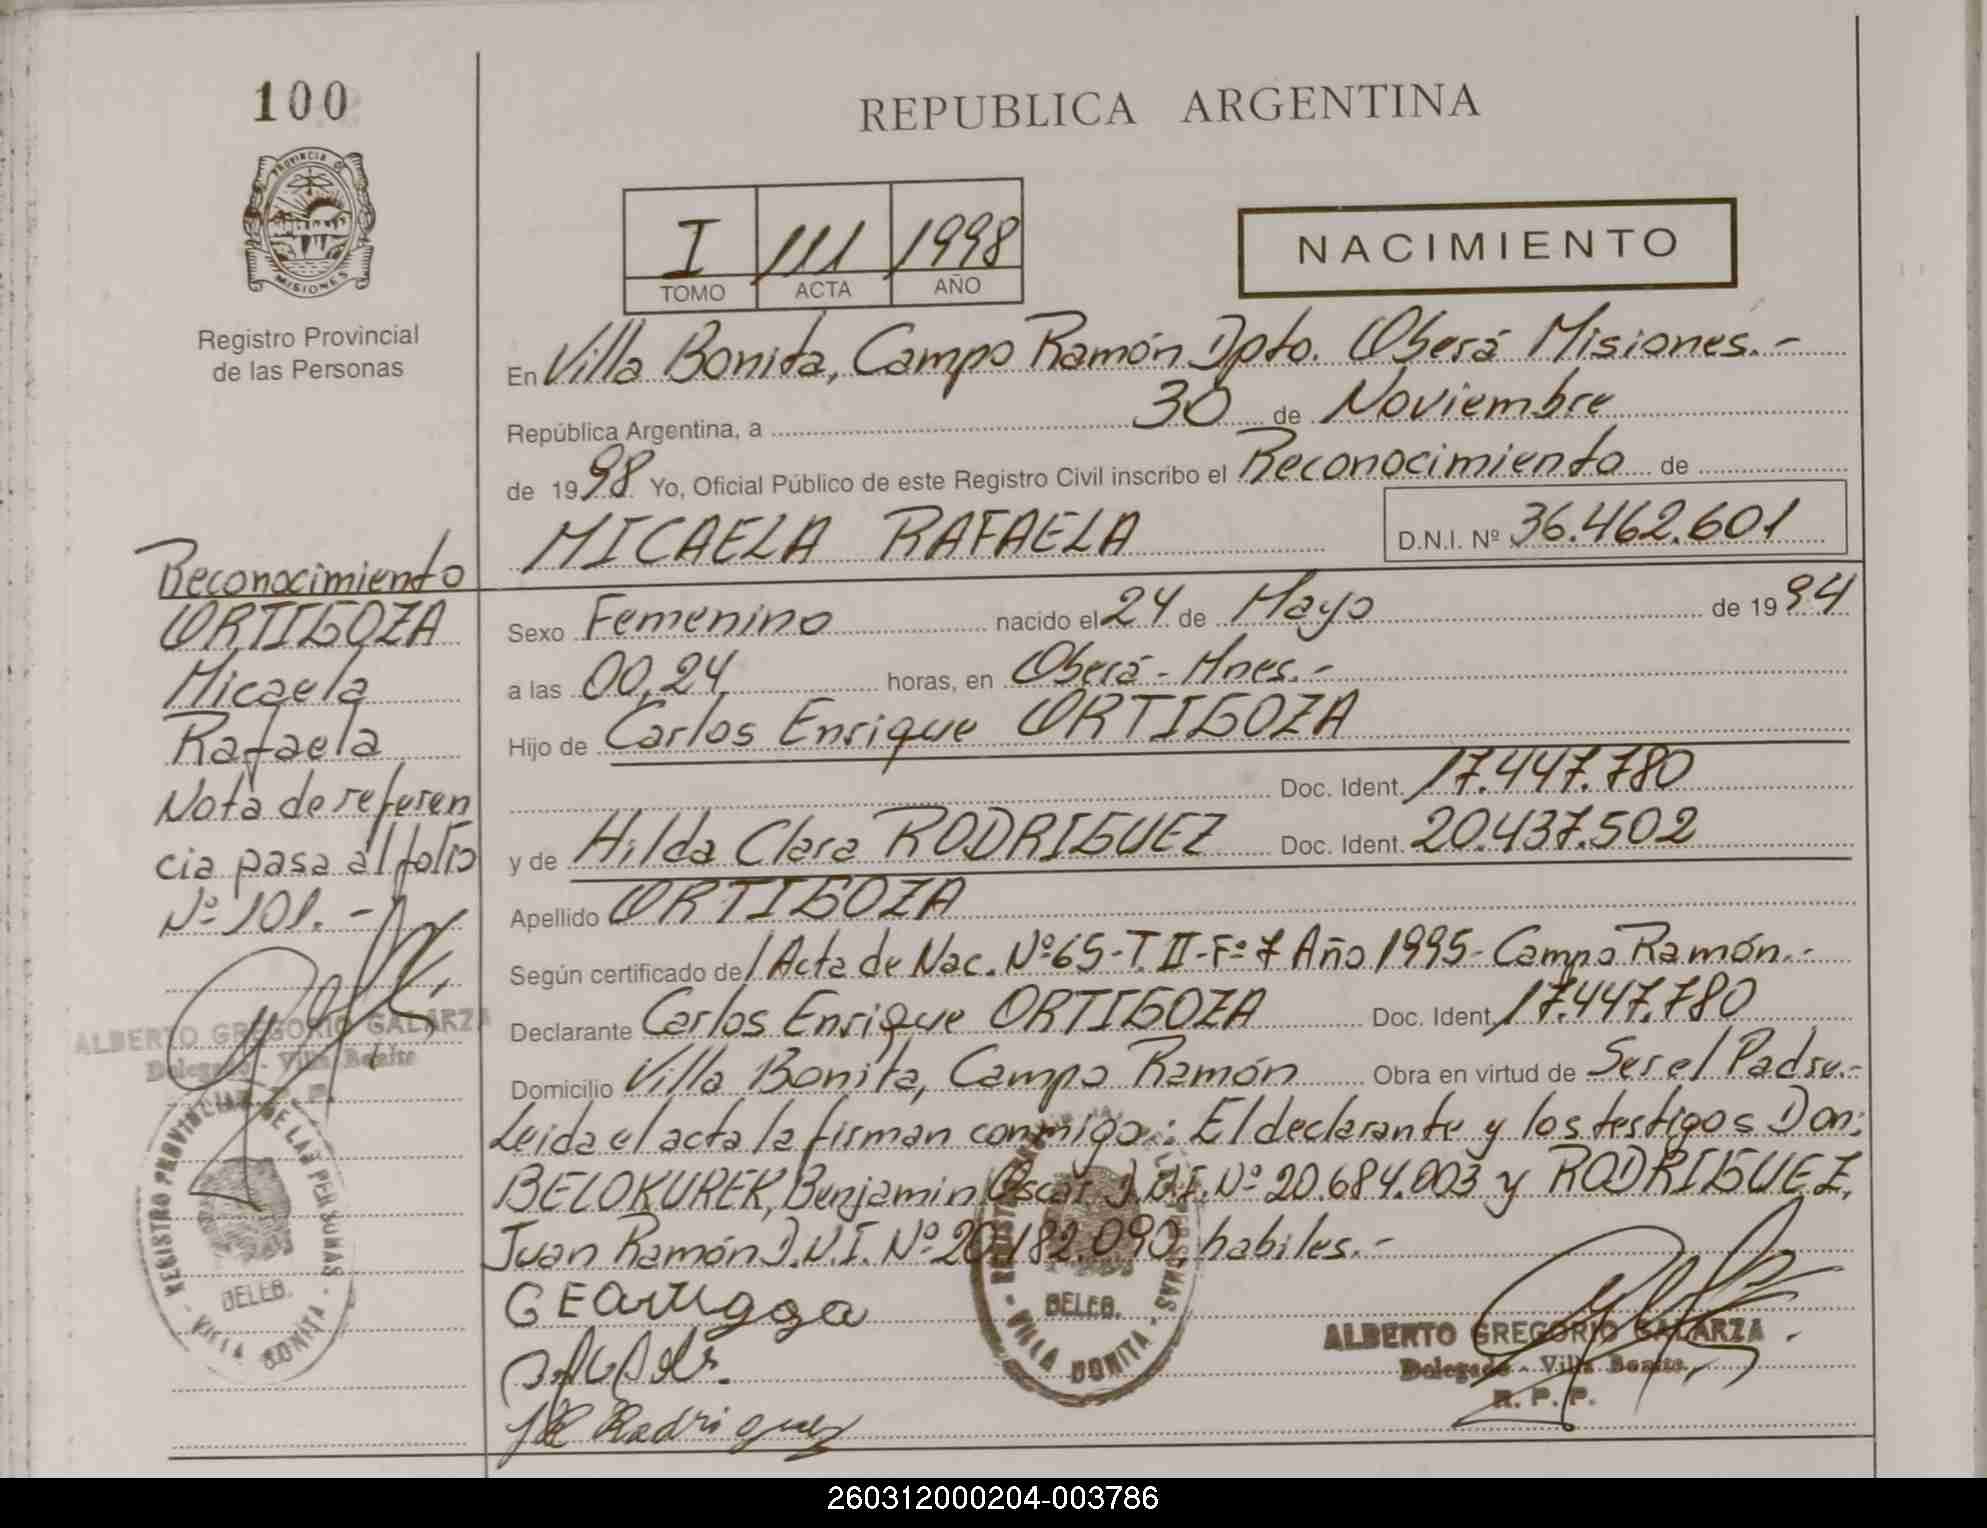 100
PROVINCIA DE
MISIONES
Registro Provincial
de las Personas
Reconocimiento
ORTIGOZA
Micaela
Rafaela
Nota de referen
cia pasa al folio
Nº 101.-
ALBERTO GREGORIO GALARZA
Delegado - Villa Bonita
REGISTRO PROVINCIAL DE LAS PERSONAS
DELEG.
- VILLA BONITA -
REPUBLICA ARGENTINA
I 111 1998
TOMO ACTA AÑO
NACIMIENTO
En Villa Bonita, Campo Ramón Dpto. Oberá Misiones.-
República Argentina, a 30 de Noviembre
de 1998 Yo, Oficial Público de este Registro Civil inscribo el Reconocimiento de
MICAELA RAFAELA D.N.I. Nº 36.462.601
Sexo Femenino nacido el 24 de Mayo de 1994
a las 00,24 horas, en Oberá - Mnes.-
Hijo de Carlos Enrique ORTIGOZA
Doc. Ident. 17.447.780
y de Hilda Clara RODRIGUEZ Doc. Ident. 20.437.502
Apellido ORTIGOZA
Según certificado de Acta de Nac. Nº 65-T. II-Fº 7 Año 1995- Campo Ramón.-
Declarante Carlos Enrique ORTIGOZA Doc. Ident. 17.447.780
Domicilio Villa Bonita, Campo Ramón Obra en virtud de Ser el Padre.-
Leida el acta la firman conmigo: El declarante y los testigos Don:
BELOKUREK, Benjamin Oscar D.N.I. Nº 20.684.003 y RODRIGUEZ,
Juan Ramón D.N.I. Nº 20.182.090, habiles.-
DELEG.
- VILLA BONITA -
ALBERTO GREGORIO GALARZA
Delegado - Villa Bonita
R. P. P.
Rodriguez
260312000204-003786